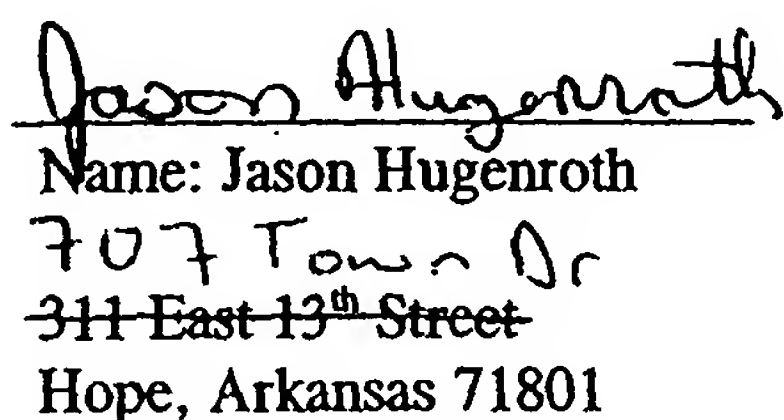 Jason Hugenroth
Name: Jason Hugenroth
707 Town Dr
311 East 13th Street
Hope, Arkansas 71801